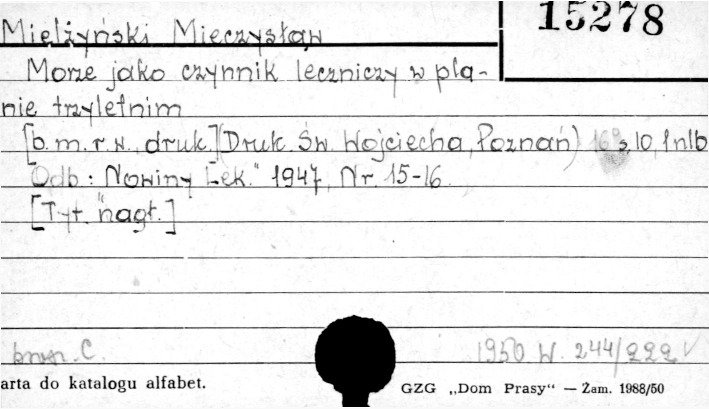 15278
Mielżyński Mieczysław
Morze jako czynnik leczniczy w pla-
nie trzyletnim
[b.m.r.w. druk.] (Druk. Św. Wojciecha, Poznań) 16° s. 10, 1 nlb
Odb: "Nowiny Lek." 1947, Nr. 15-16.
[Tyt. nagł.]
C.
1950 W. 244/222
arta do katalogu alfabet.
GZG „Dom Prasy“ — Zam. 1988/50